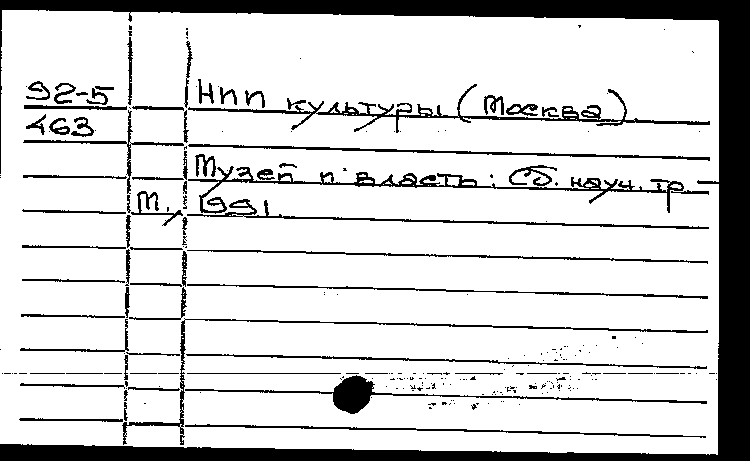 92-5 НИИ культуры (Москва).
463
Музей и власть: Сб. науч. тр. –
М., 1991.